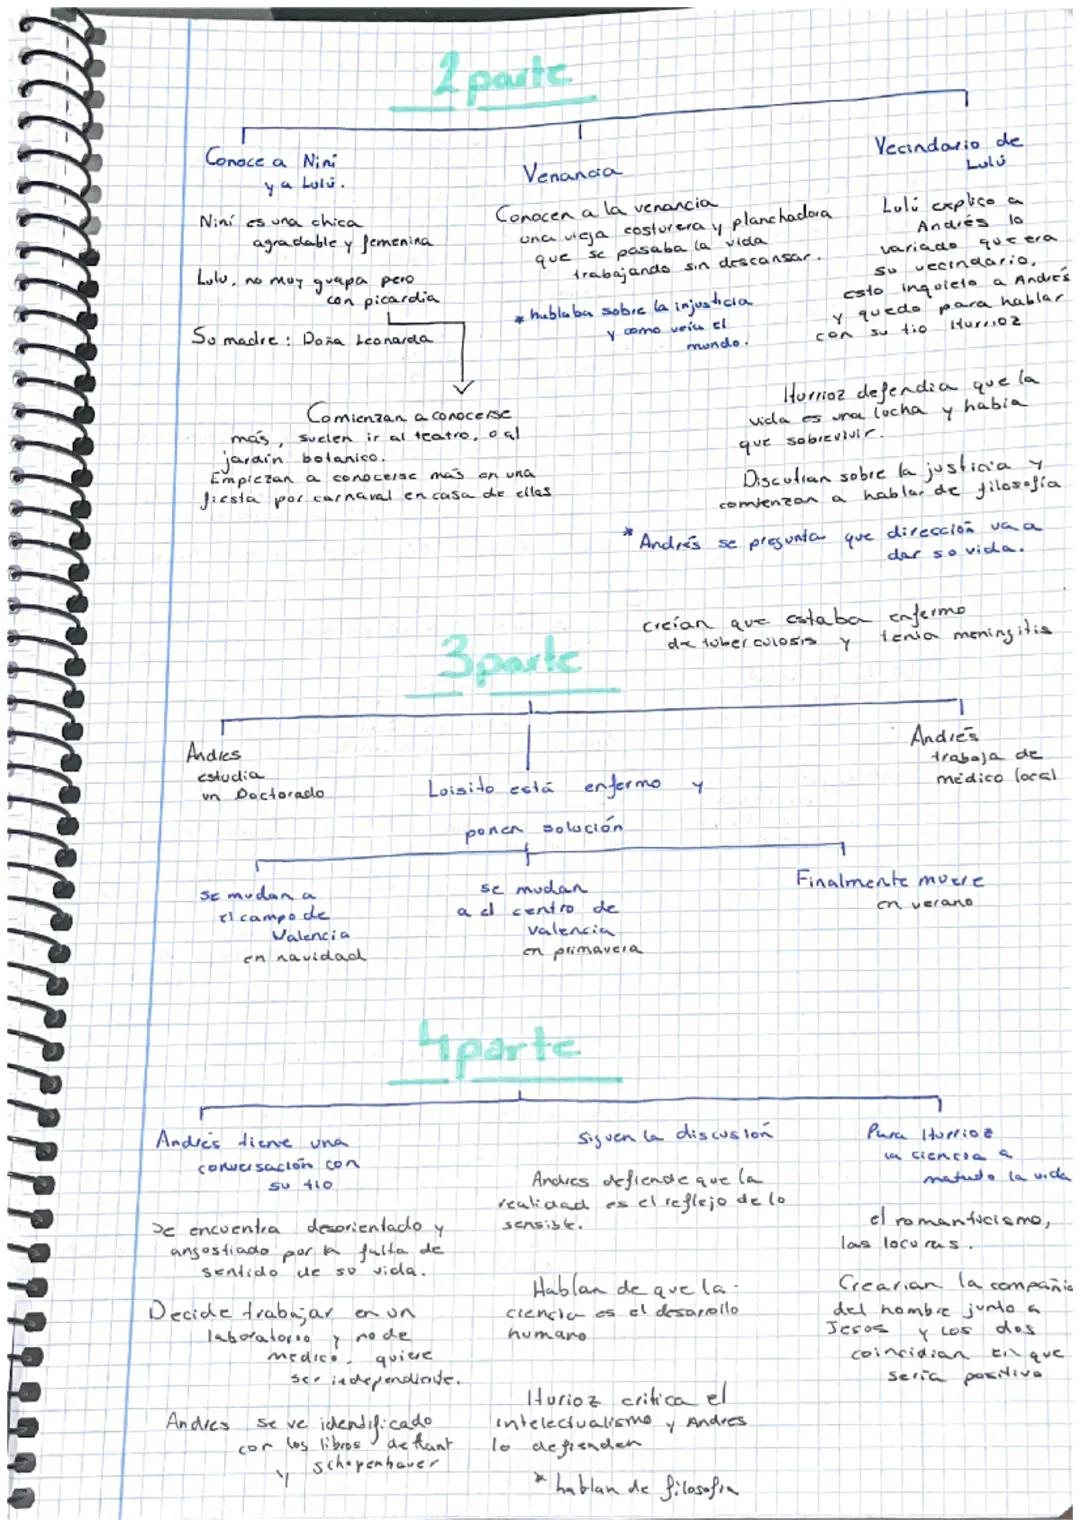 2 parte
Conoce a Niní
y a Lulú.
Niní es una chica
agradable y femenina
Lulu, no muy guapa pero
con picardia
Su madre: Doña Leonarda
Comienzan a conocerse
más, suelen ir al teatro, o al
jardín botanico.
Empiezan a conocerse más en una
fiesta por carnaval en casa de ellas
Venancia
Conocen a la venancia
una vieja costurera y planchadora
que se pasaba la vida
trabajando sin descansar.
* hablaba sobre la injusticia
y como veia el
mundo.
Vecindario de
Lulú
Lulú explico a
Andrés lo
variado que era
su vecindario,
esto inquieto a Andrés
y quedo para hablar
con su tio Iturrioz
Iturrioz defendia que la
vida es una lucha y habia
que sobrevivir.
Discutian sobre la justicia y
comienzan a hablar de filosofía
* Andrés se pregunta que dirección va a
dar su vida.
3 parte
creían que estaba enfermo
de tuberculosis y tenia meningitis
Andres
estudia
un Doctorado
Luisito está enfermo y
ponen solución
Andrés
trabaja de
médico local
se mudan a
el campo de
Valencia
en navidad
se mudan
a el centro de
valencia
en primavera
Finalmente muere
en verano
4 parte
Andrés tiene una
conversación con
su tio
Se encuentra desorientado y
angostiado por la falta de
sentido de su vida.
Decide trabajar en un
laboratorio y no de
medico. quiere
ser independiente.
Andres se ve identificado
con los libros de Kant
y schopenhauer
siguen la discusión
Andres defiende que la
realidad es el reflejo de lo
sensible.
Hablan de que la
ciencia es el desarollo
humano
Iturioz critica el
intelectualismo y Andres
lo defienden
* hablan de filosofia
Para Iturrioz
la ciencia a
matado la vida
el romanticismo,
las locuras.
Crearian la compañia
del hombre junto a
Jesos y los dos
coincidian en que
seria positivo